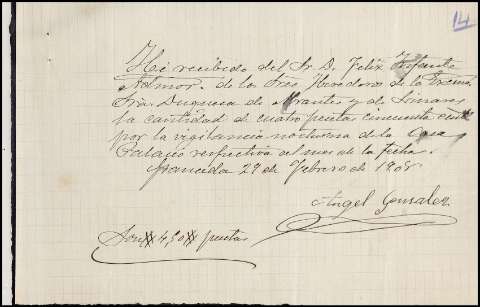 14
He recibido del Sr. D. Felix Infante
Admor. de los Sres Herederos de la Excma.
Sra. Duquesa de Abrantes y de Linares
la cantidad de cuatro pesetas cincuenta cents
por la vigilancia nocturna de la Casa
Palacio respectiva al mes de la fecha.
Granada 29 de Febrero de 1908.
Angel Gonzalez
Son 4,50 pesetas